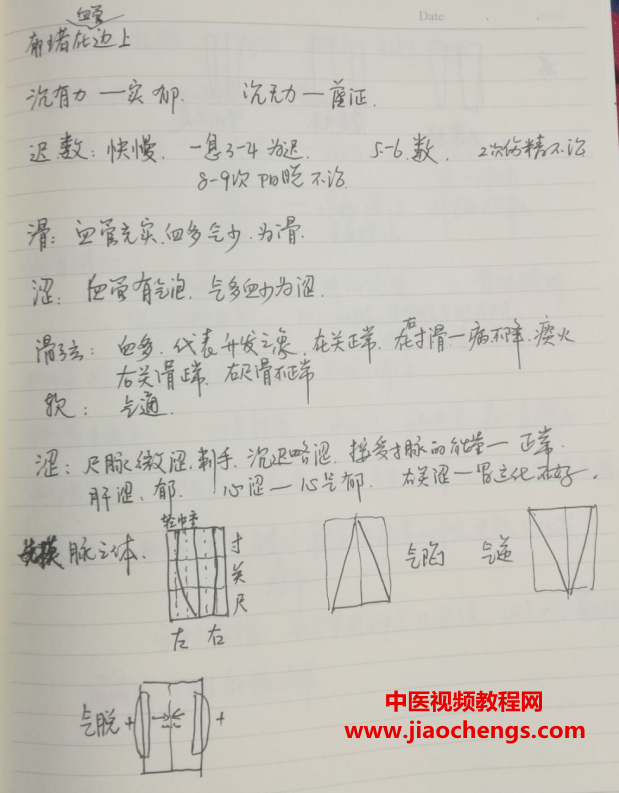 Date
血管
有堵在边上
沉有力 — 实 郁. 沉无力 — 虚证.
迟.数: 快慢. 一息3-4为迟. 5-6.数. 2次伤精不治
8-9次 阳脱不治.
滑: 血管充实.血多气少.为滑.
涩: 血管有气泡. 气多血少为涩.
滑弦: 血多. 代表升发之象. 在关正常. 在寸滑—病不降.痰火
右关滑正常. 右尺滑不正常
软: 气通.
涩: 尺脉微涩.刺手. 沉迟略涩. 接受寸脉的能量— 正常.
肝涩: 郁. 心涩—心气郁. 右关涩—胃运化不好.
脉立体. 寸
关
尺
左 右
气陷 气逆
气脱 + +
中医视频教程网
www.jiaochengs.com